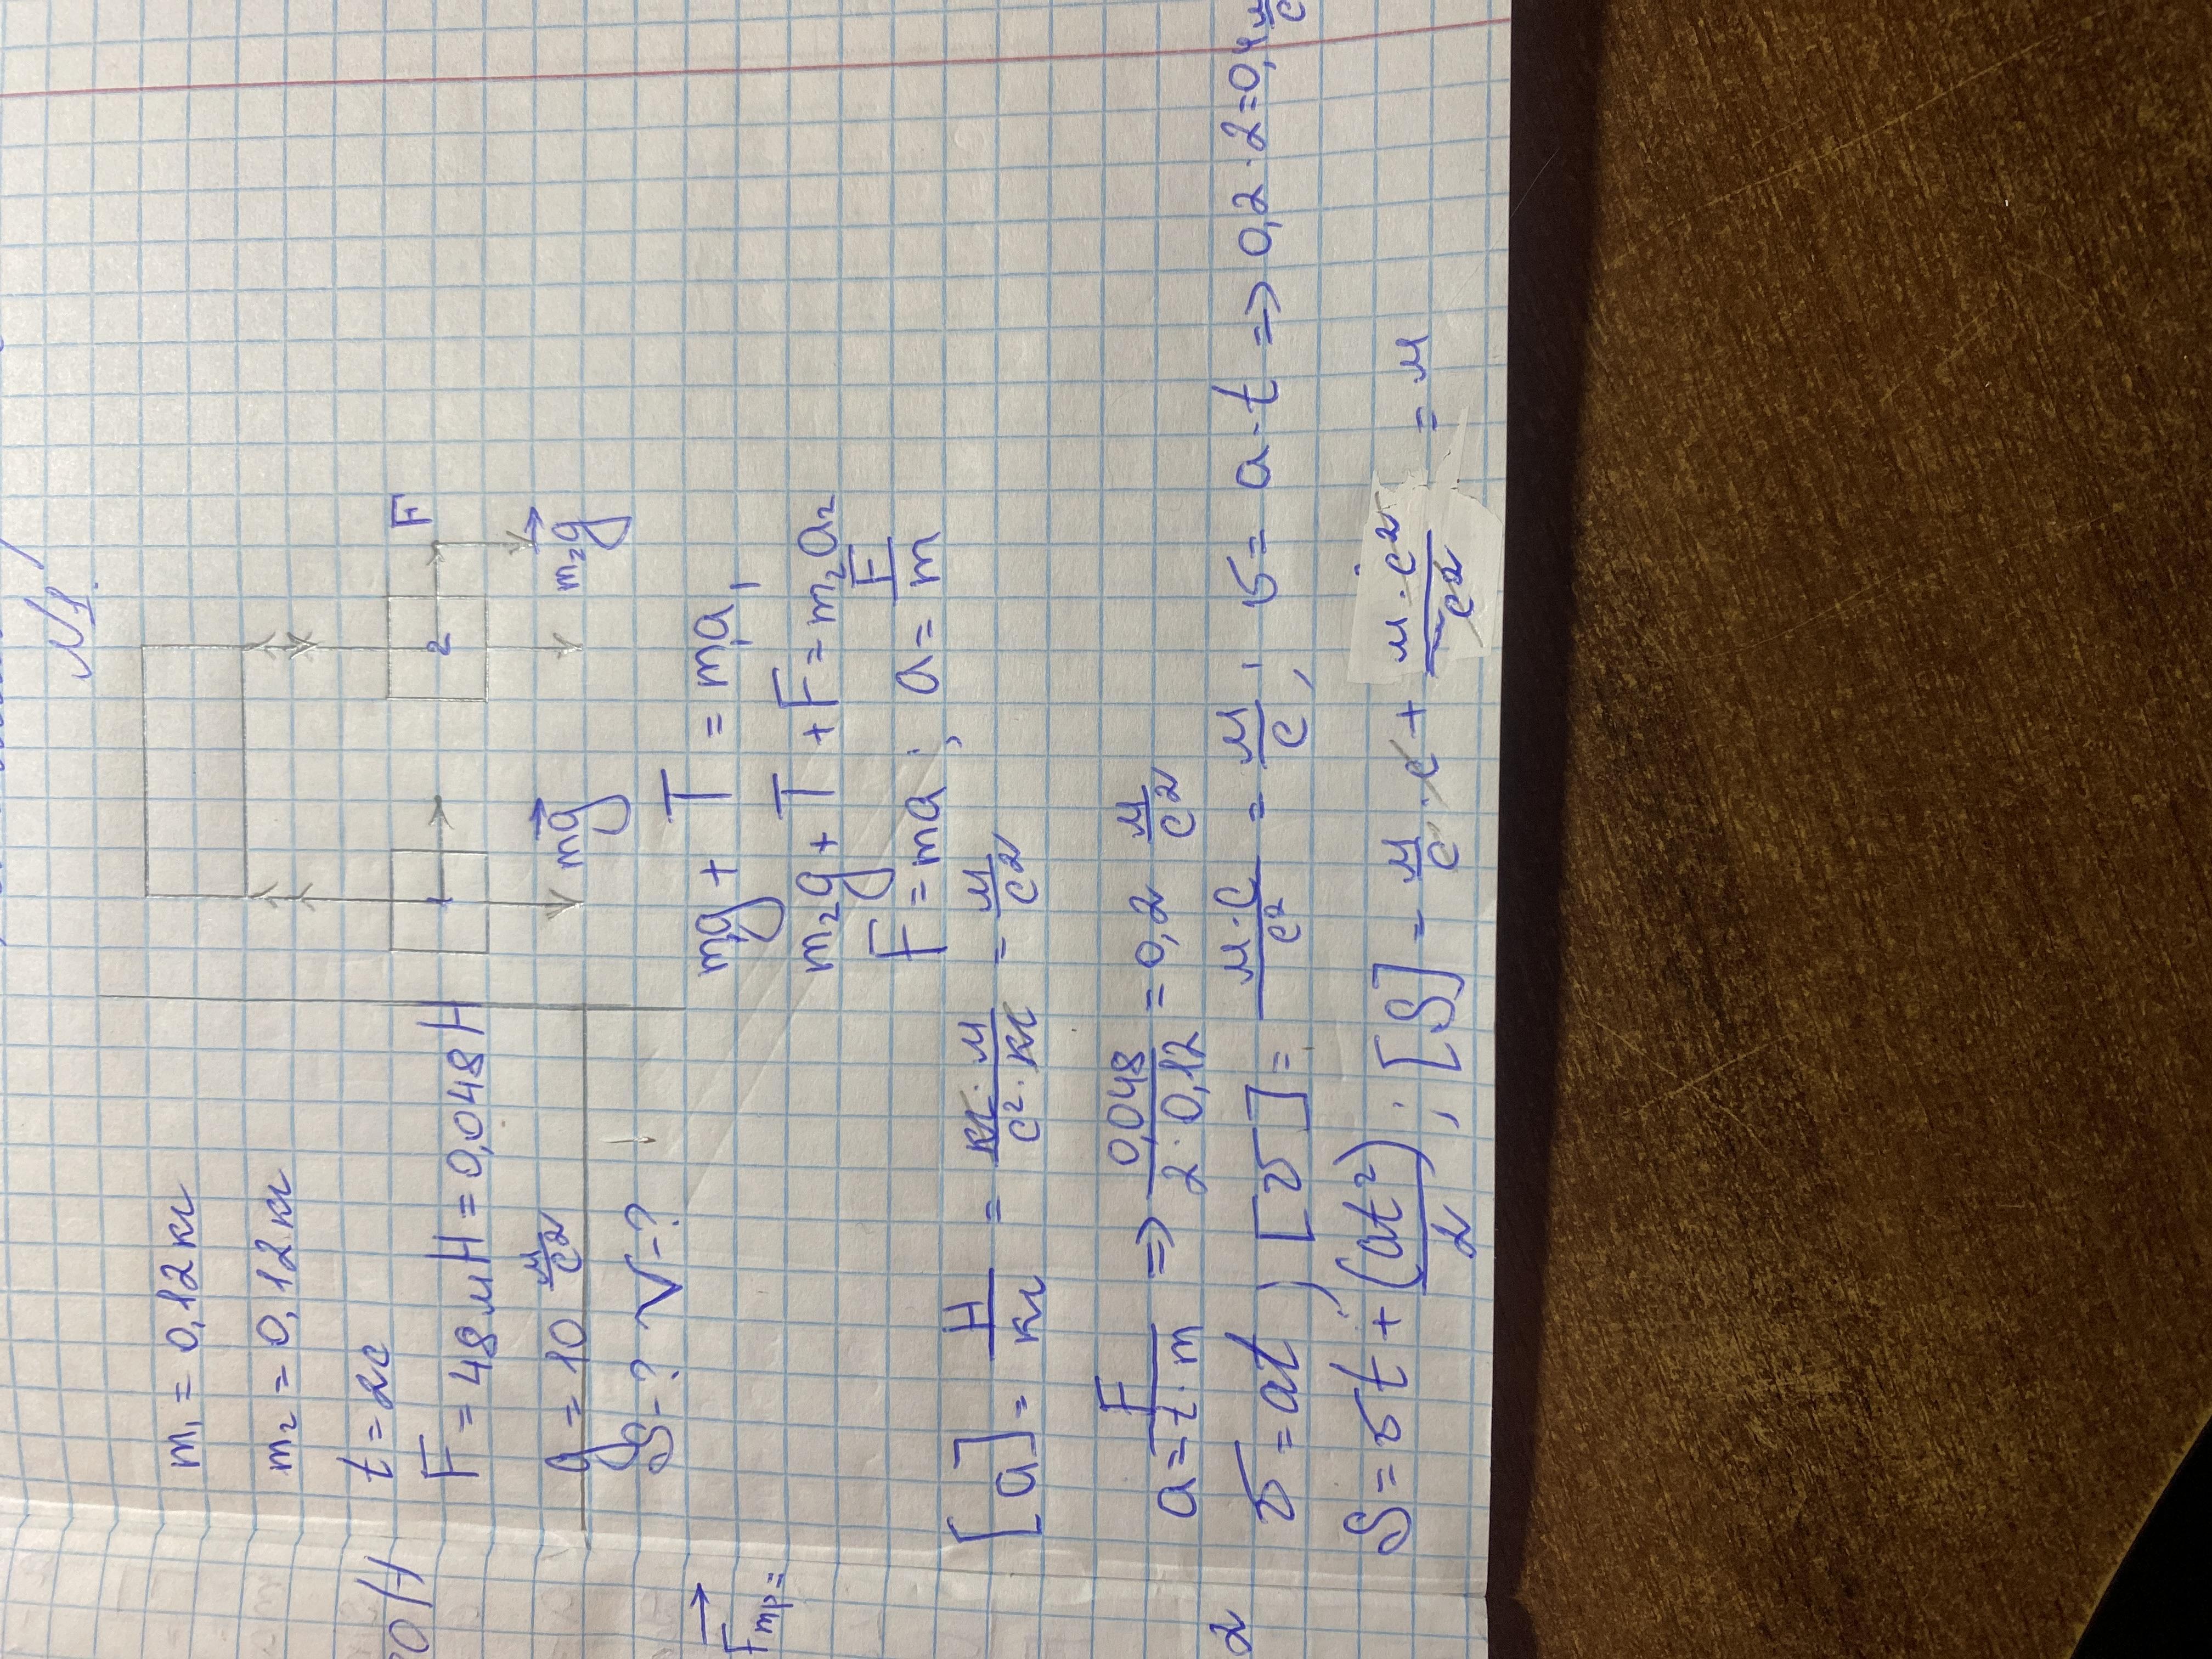 N1.
m₁ = 0,12 кг
m₂ = 0,12 кг
t = 2c
F = 48 мН = 0,048 Н
g = 10 м/c²
S - ? V - ?
1
2
F
mg
m₂g
m₁g + T = m₁a₁
m₂g + T + F = m₂a₂
F = ma; a = F/m
[a] = Н/кг = кг·м/c²·кг = м/c²
a = F/t·m => 0,048/2·0,12 = 0,2 м/c²
v = at; [v] = м·c/c² = м/c, v = a·t => 0,2·2=0,4 м/c
S = vt + (at²)/2; [S] = м/c·c + м·c²/c² = м
0 Н
Fтр=
2